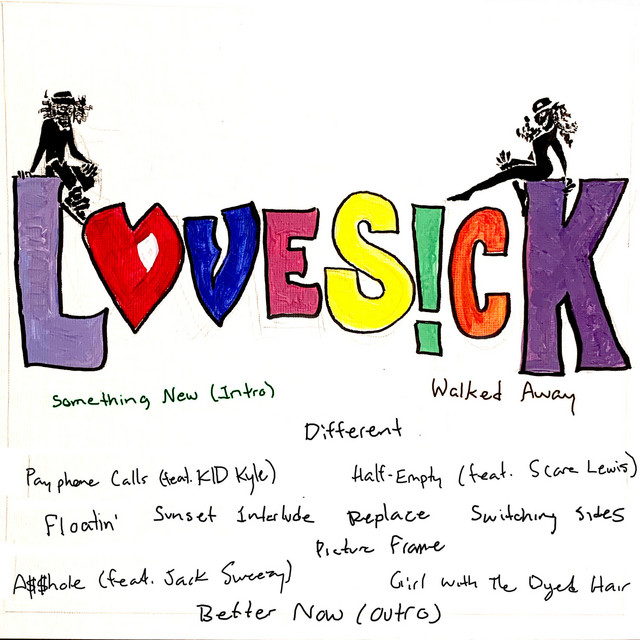 LOVES!CK
Something New (Intro) Walked Away
Different
Payphone Calls (feat. KID Kyle) Half-Empty (feat. Scare Lewis)
Floatin' Sunset Interlude Replace Switching Sides
Picture Frame
A$$hole (feat. Jack Sweezy) Girl With The Dyed Hair
Better Now (Outro)